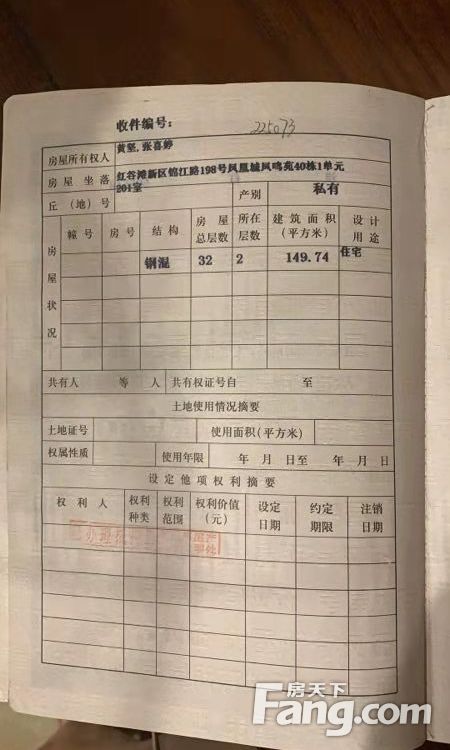 收件编号： 225073
房屋所有权人 黄坚,张喜婷
房屋坐落 红谷滩新区锦江路198号凤凰城凤鸣苑40栋1单元
201室
丘（地）号 产别 私有
房屋状况 幢号 房号 结构 房屋总层数 所在层数 建筑面积（平方米） 设计用途
钢混 32 2 149.74 住宅
共有人 等 人 共有权证号自 至
土地使用情况摘要
土地证号 使用面积(平方米)
权属性质 使用年限 年 月 日至 年 月 日
设定他项权利摘要
权利人 权利种类 权利范围 权利价值（元） 设定日期 约定期限 注销日期
房天下
Fang.com